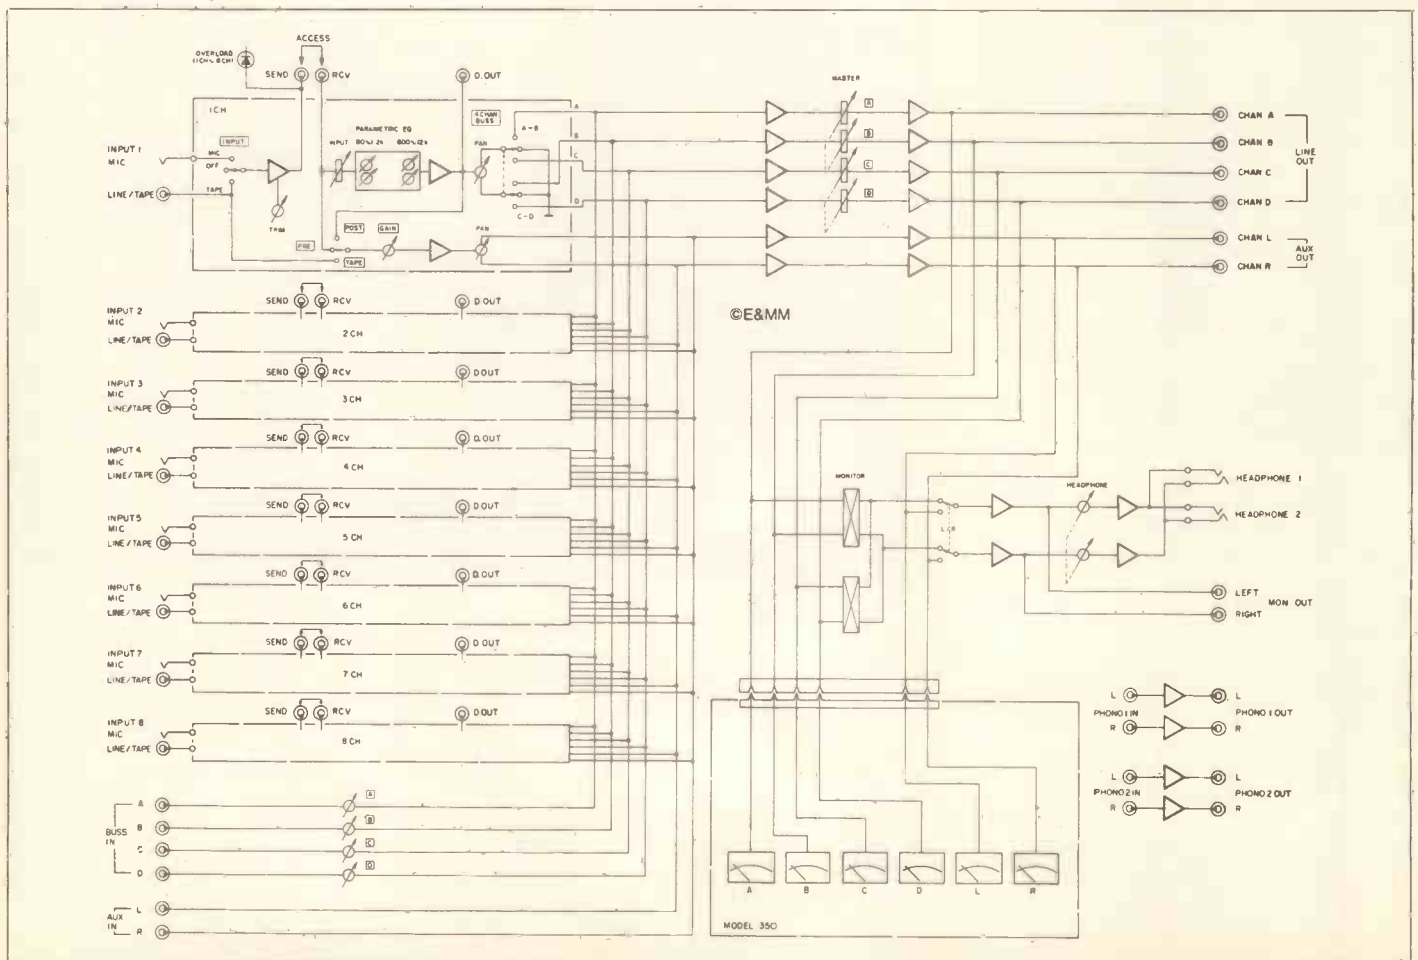 ACCESS
OVERLOAD
(1CH~8CH)
SEND
RCV
D.OUT
1CH
INPUT 1
MIC
LINE/TAPE
INPUT
MIC
OFF
TAPE
TRIM
PARAMETRIC EQ
INPUT
PAN
4CHAN
BUSS
A-B
C-D
A
B
C
D
PRE
POST
TAPE
GAIN
PAN
MASTER
A
B
C
D
CHAN A
CHAN B
CHAN C
CHAN D
LINE
OUT
CHAN L
CHAN R
AUX
OUT
©E&MM
INPUT 2
MIC
LINE/TAPE
SEND
RCV
D.OUT
2 CH
INPUT 3
MIC
LINE/TAPE
SEND
RCV
D.OUT
3 CH
INPUT 4
MIC
LINE/TAPE
SEND
RCV
D.OUT
4 CH
INPUT 5
MIC
LINE/TAPE
SEND
RCV
D.OUT
5 CH
INPUT 6
MIC
LINE/TAPE
SEND
RCV
D.OUT
6 CH
INPUT 7
MIC
LINE/TAPE
SEND
RCV
D.OUT
7 CH
INPUT 8
MIC
LINE/TAPE
SEND
RCV
D.OUT
8 CH
BUSS
IN
A
B
C
D
A
B
C
D
AUX
IN
L
R
MONITOR
L/R
HEADPHONE
HEADPHONE 1
HEADPHONE 2
LEFT
RIGHT
MON OUT
L
PHONO 1 IN
R
L
PHONO 1 OUT
R
L
PHONO 2 IN
R
L
PHONO 2 OUT
R
A
B
C
D
L
R
MODEL 350